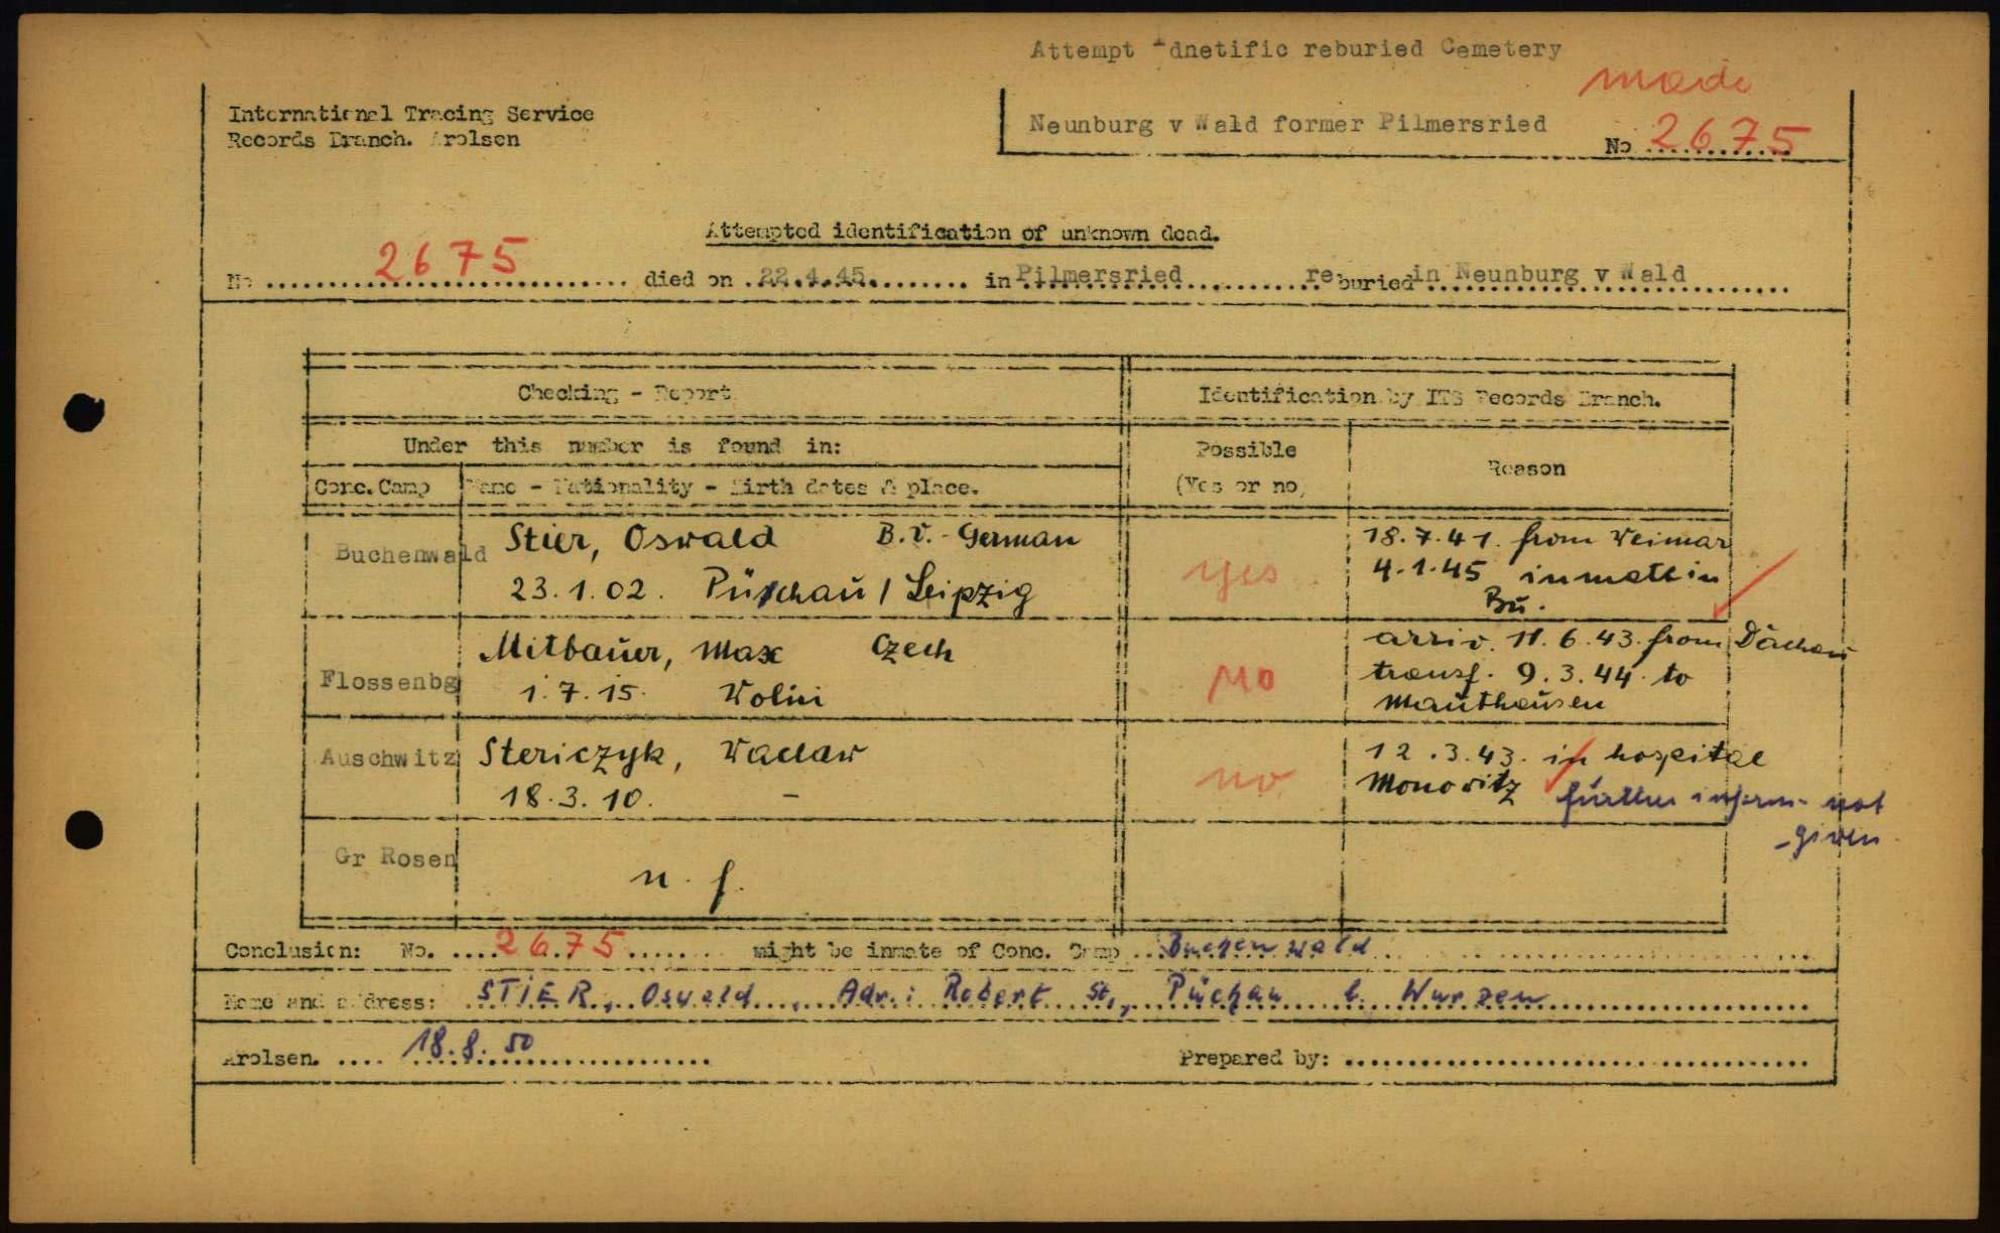 Attempt Idnetific reburied Cemetery
made
International Tracing Service
Records Branch. Arolsen
Neunburg v Wald former Pilmersried
No 2675
Attempted identification of unknown dead.
No 2675 died on 22.4.45. in Pilmersried reburied in Neunburg v Wald
Checking - Report
Identification by ITS Records Branch.
Under this number is found in:
Possible
(Yes or no)
Reason
Conc. Camp
Name - Nationality - Birth dates & place.
Buchenwald
Stier, Oswald B.V.- German
23.1.02. Püchau / Leipzig
yes
18.7.41. from Weimar
4.1.45 inmate in
Bu.
Flossenbg
Mitbauer, Max Czech
1.7.15. Wolini
no
arriv. 11.6.43. from Dachau
transf. 9.3.44. to
Mauthausen
Auschwitz
Stericzyk, Waclaw
18.3.10. -
no
12.3.43. in hospital
Monowitz
further inform. not
given
Gr Rosen
n. f.
Conclusion: No. 2675 might be inmate of Conc. Camp Buchenwald
Name and address: STIER, Oswald, Adr.: Robert St., Püchau b. Wurzen
Arolsen. 18.8.50
Prepared by: